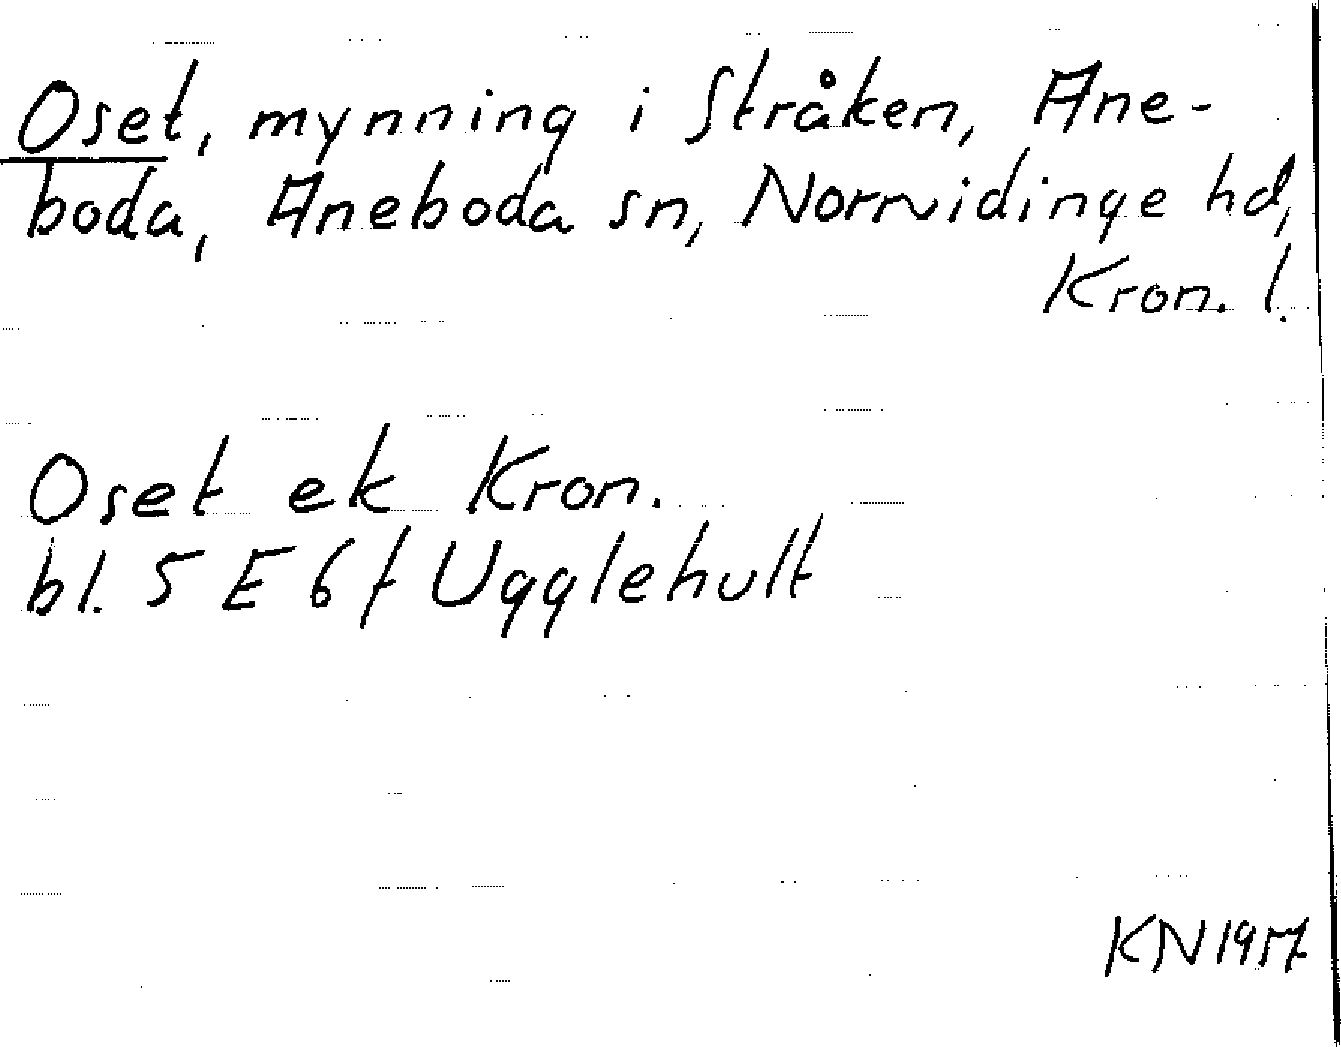 Oset, mynning i Stråken, Ane-
boda, Aneboda sn, Norrvidinge hd,
Kron. l.
Oset ek Kron.
bl. 5 E 6 f Ugglehult
KN 1957